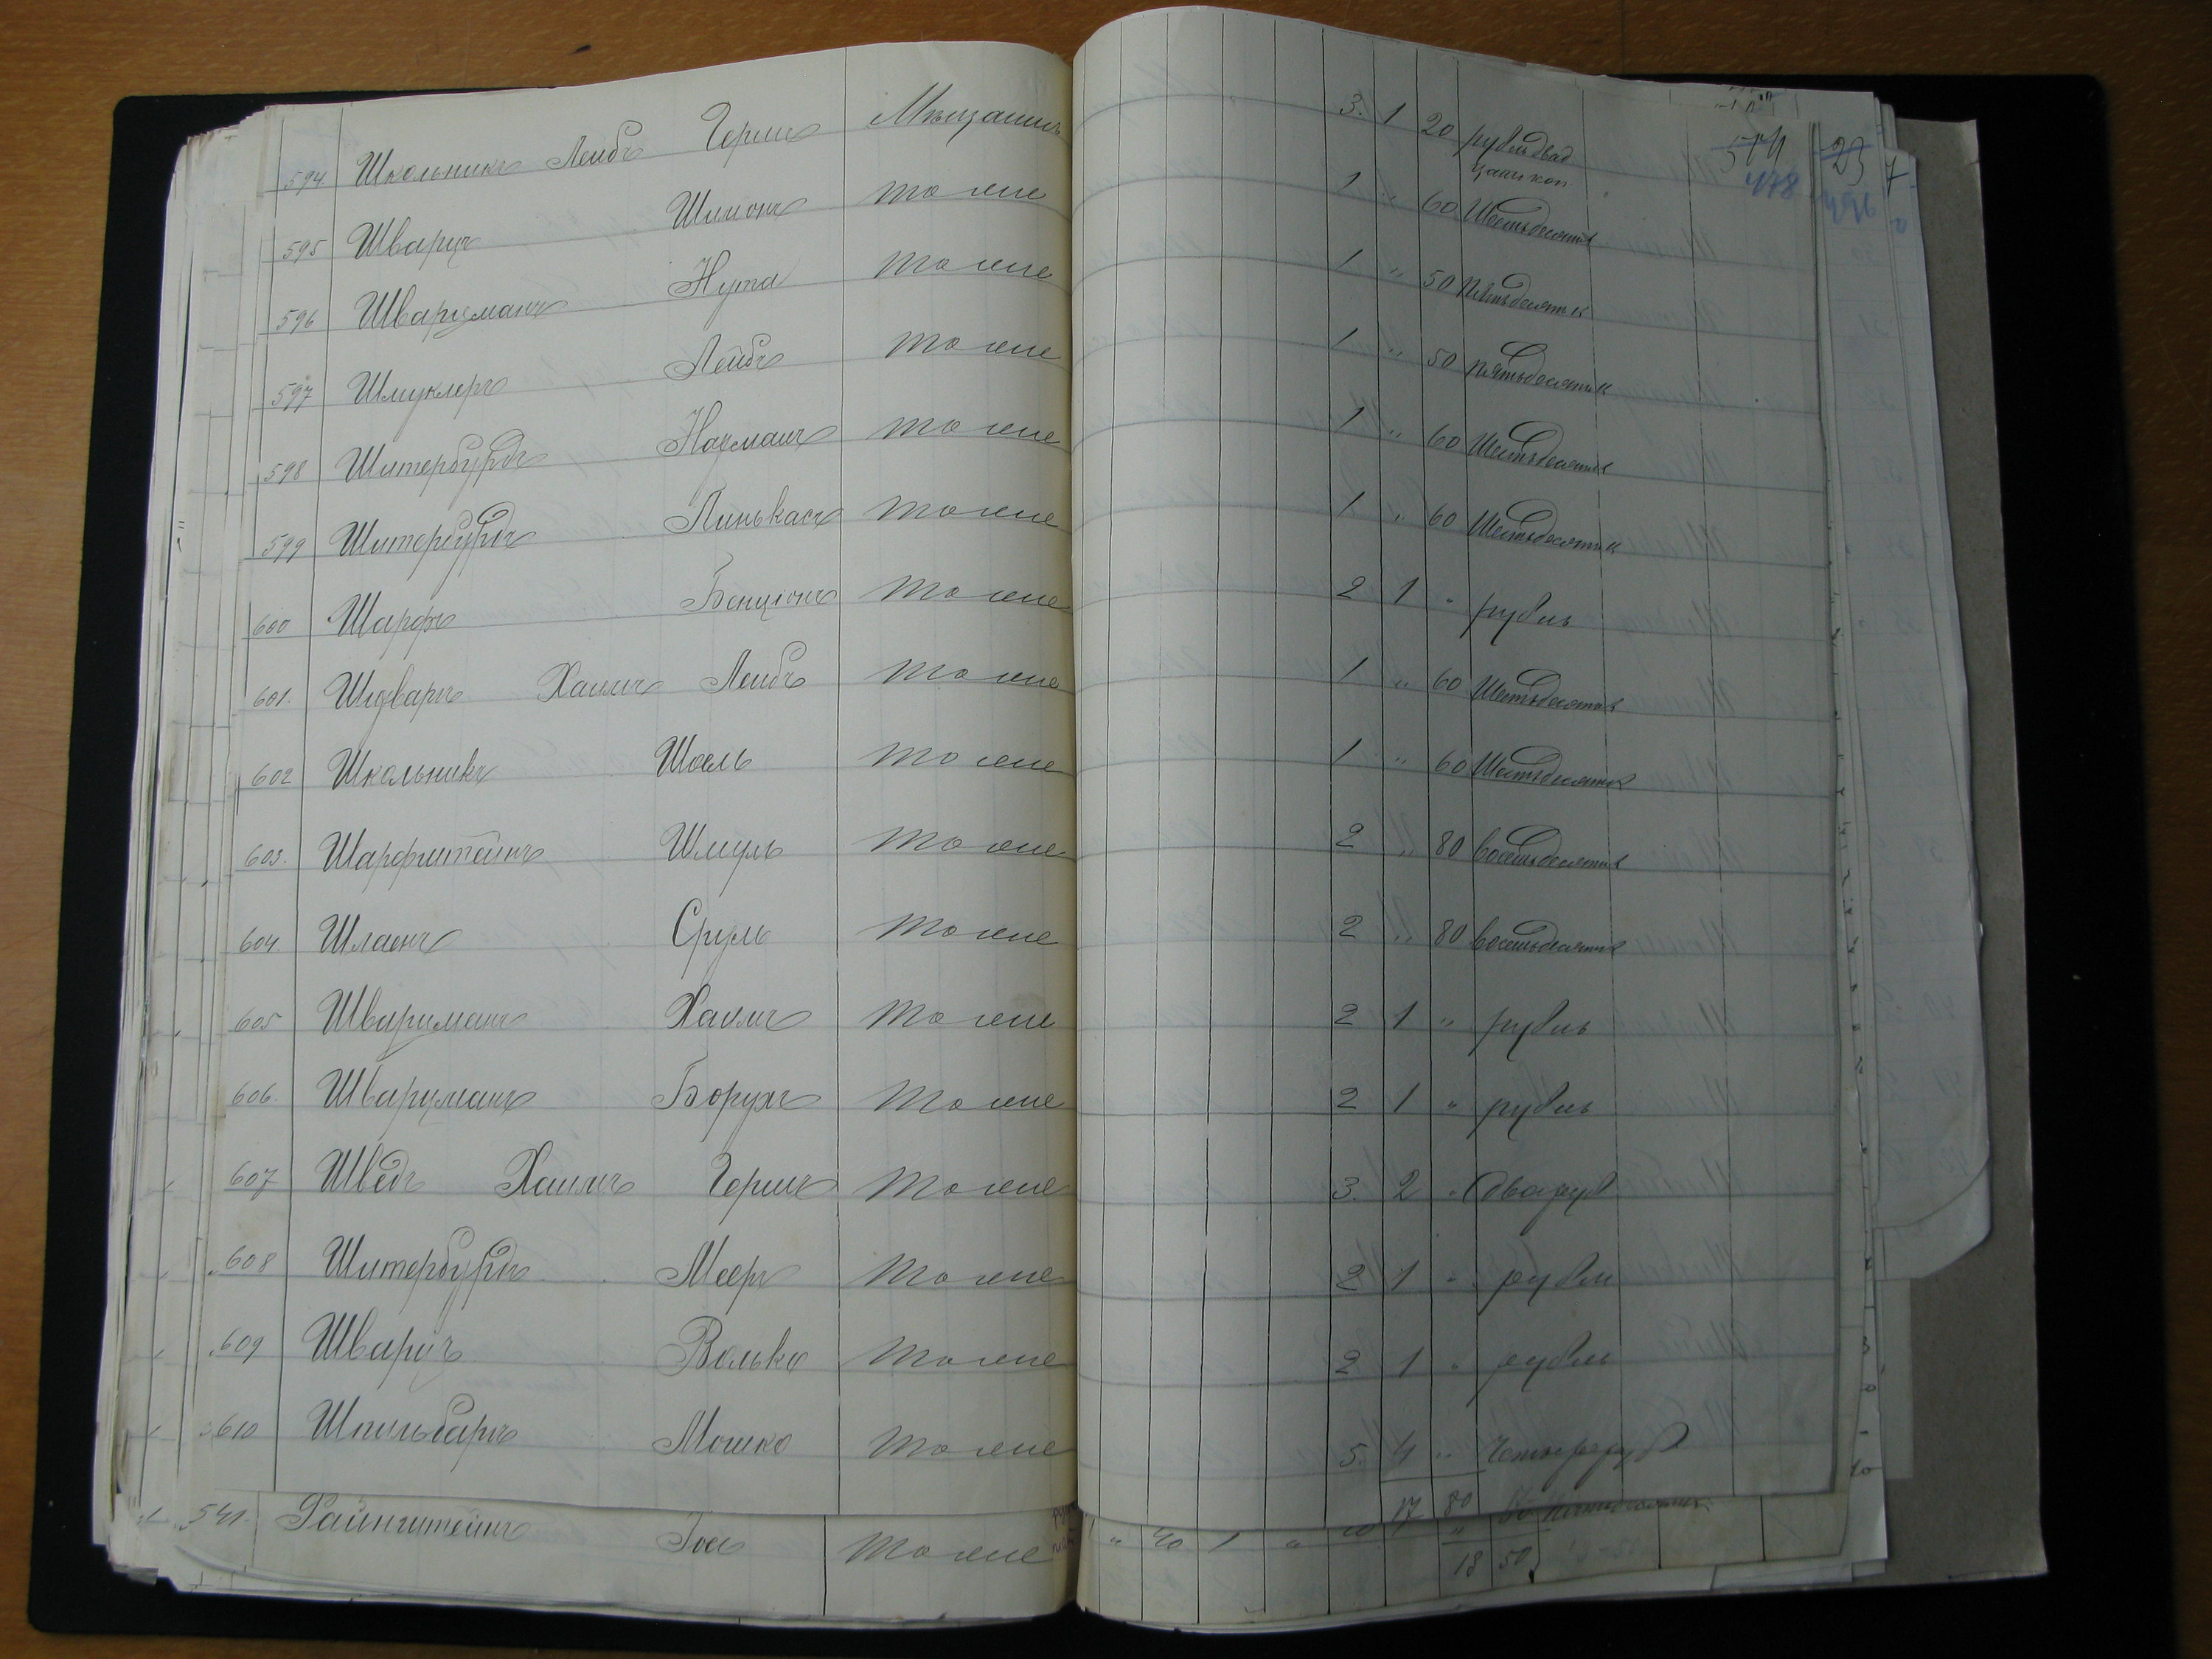 594. Школьникъ Лейбъ Гершъ Мѣщанинъ 3. 1 20 рубль двад
цать коп
514
478
23
7
595 Шварцъ Шимонъ тоже 1 " 60 Шестьдесятъ
596 Шварцманъ Нута тоже 1 " 50 Пятьдесятъ к
597 Шмуклеръ Лейбъ тоже 1 " 50 Пятьдесятъ к
598 Штернбурдъ Нахманъ тоже 1 " 60 Шестьдесятъ
599 Пинькасъ тоже 1 " 60 Шестьдесятъ к
600 Шарфъ Бенціонъ тоже 2 1 " рубль
601. Хаимъ Лейбъ тоже 1 " 60 Шестьдесятъ
602 Школьникъ Шоель тоже 1 " 60 Шестьдесятъ
603. Шарфштейнъ Шмуль тоже 2 " 80 восемьдесятъ
604. Шлаенъ Сруль тоже 2 " 80 восемьдесятъ
605 Шварцманъ Хаимъ тоже 2 1 " рубль
606. Шварцманъ Борухъ тоже 2 1 " рубль
607 Шведъ Хаимъ Гершъ тоже 3. 2 " два руб
608 Мееръ тоже 2 1 " рубль
609 Шварцъ Волько тоже 2 1 " рубль
610 Шпильбаргъ Мошко тоже 5. 4 " Четыре руб
17 80
541. Файнштейнъ Іосъ тоже " 40 1 " 50
18 50